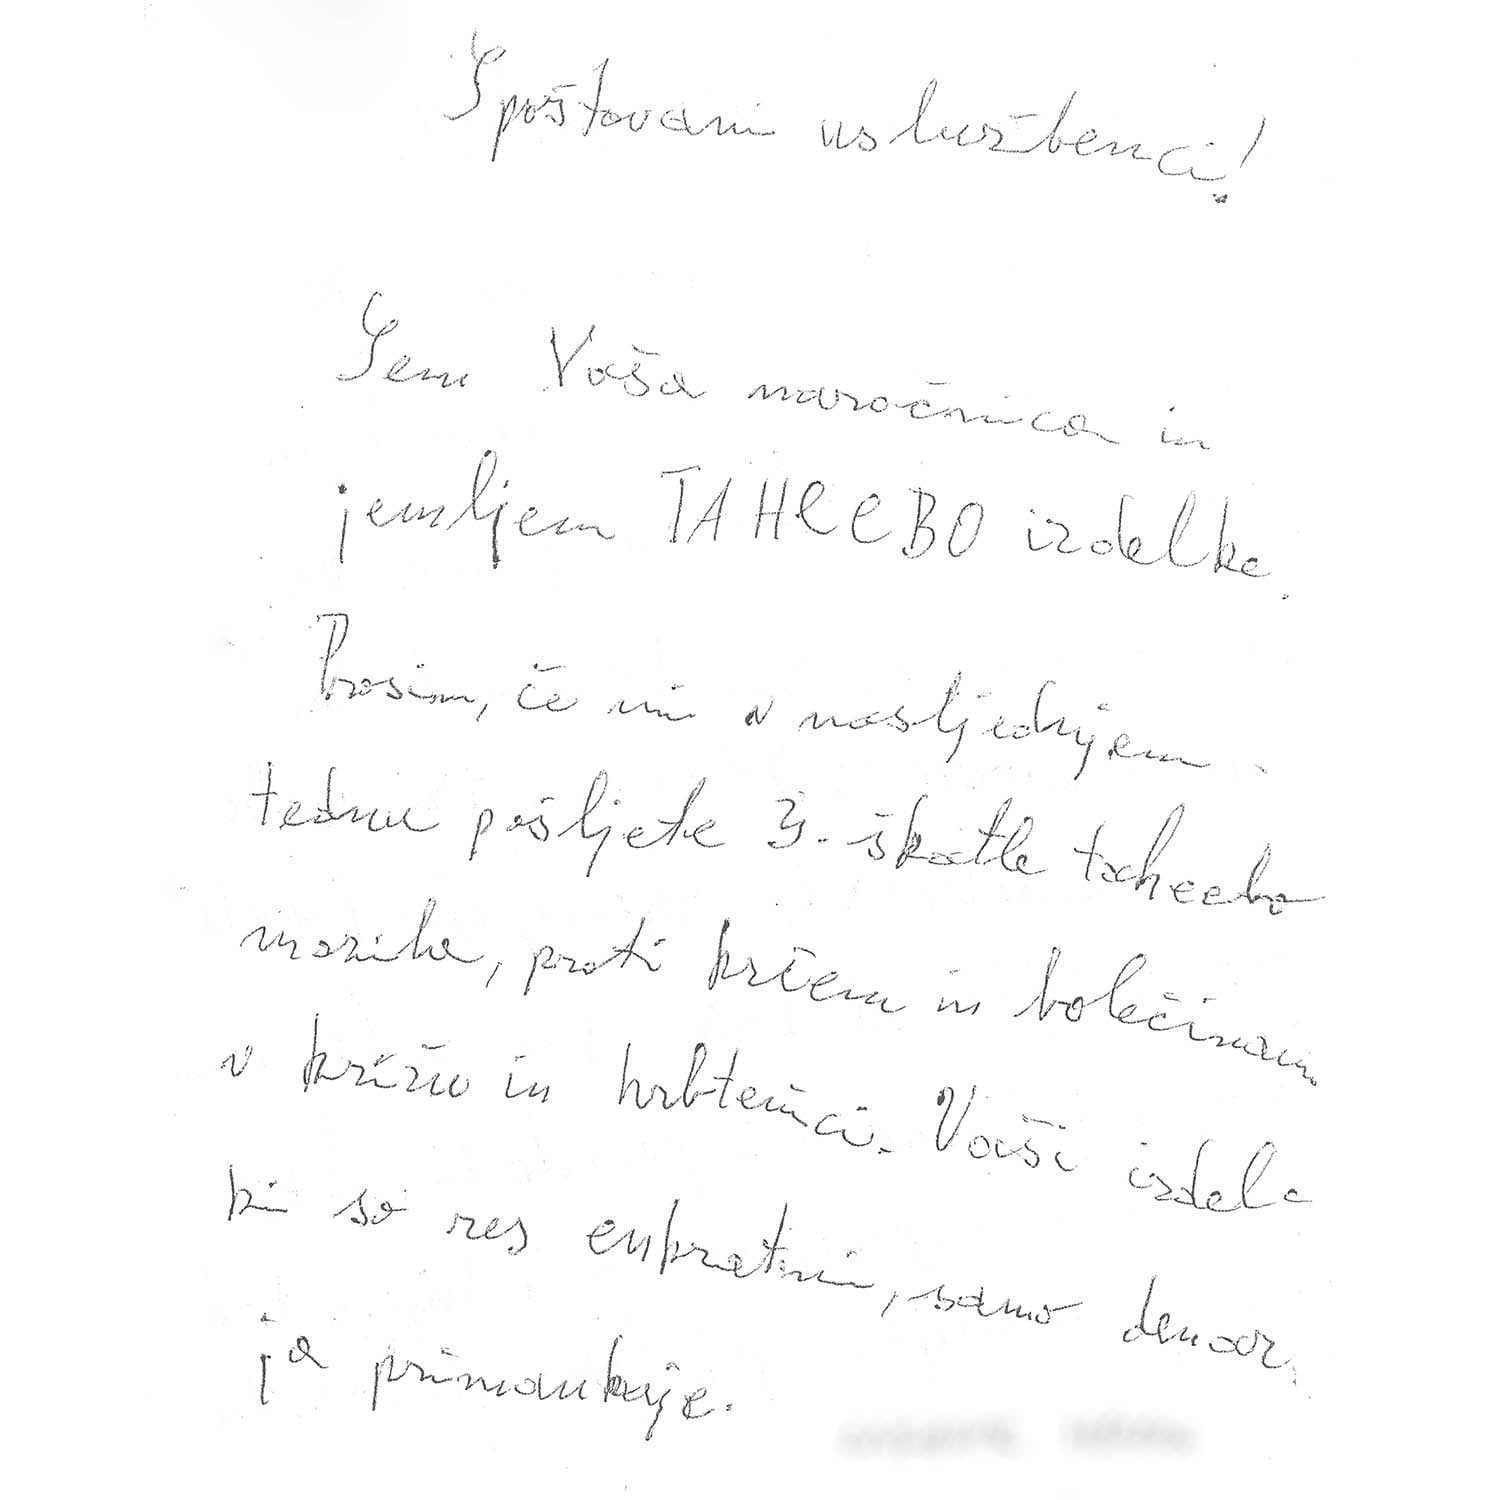 Spoštovani uslužbenci!
Sem Vaša naročnica in
jemljem TAHEEBO izdelke.
Prosim, če mi v nasljednjem
tednu pošljete 3. škatle taheebo
mazila, proti krčem in bolečinam
v križu in hrbtenici. Vaši izdel-
ki so res enkratni, samo denar-
ja primankuje.